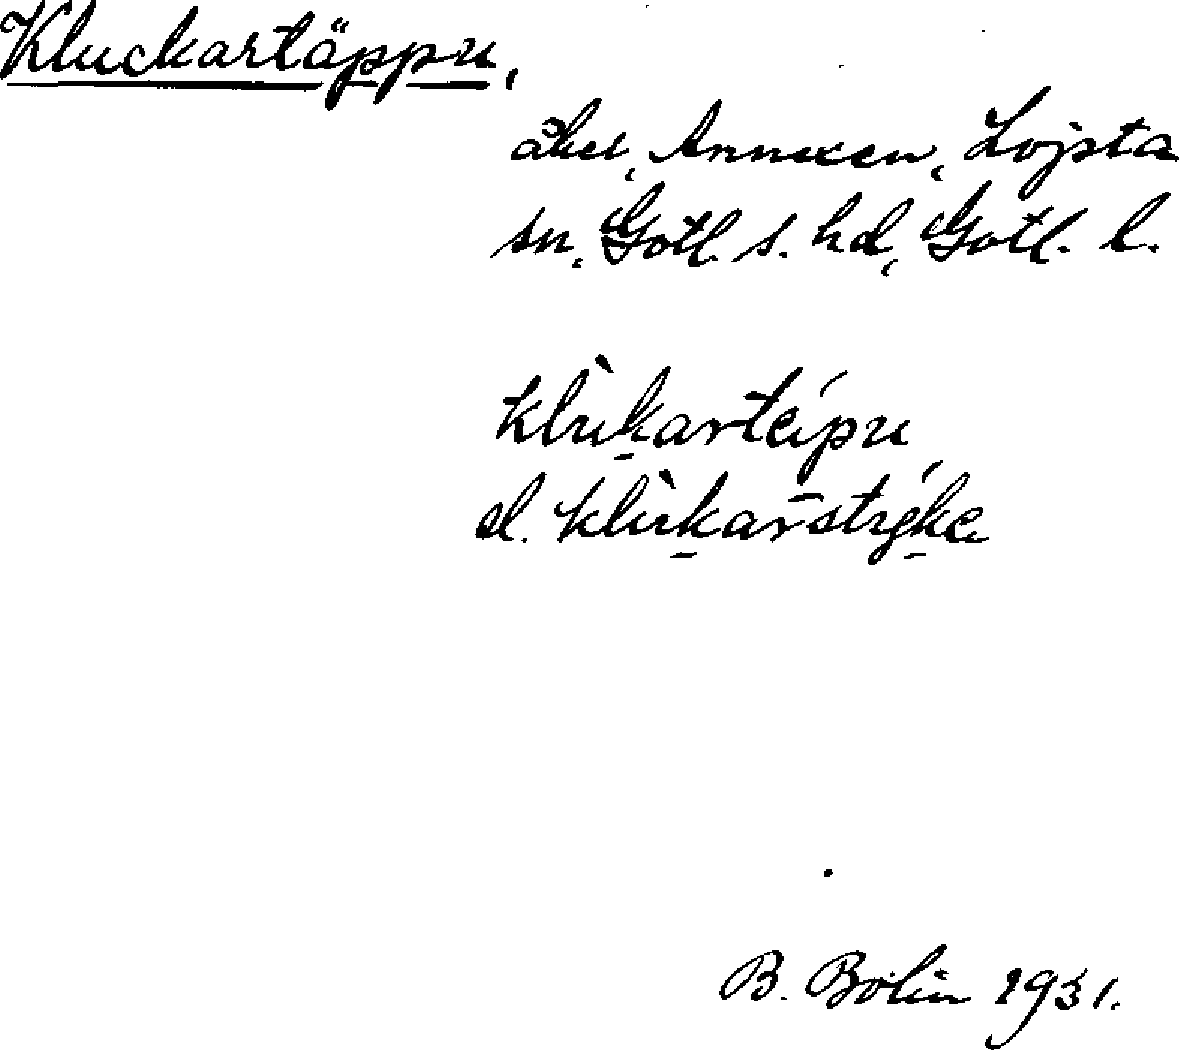 Kluckartäppu,
åker, Annexen, Lojsta
sn, Gotl. s. hd, Gotl. l.
klùkartépu
el. klùkarstryke
B. Bolin 1931.